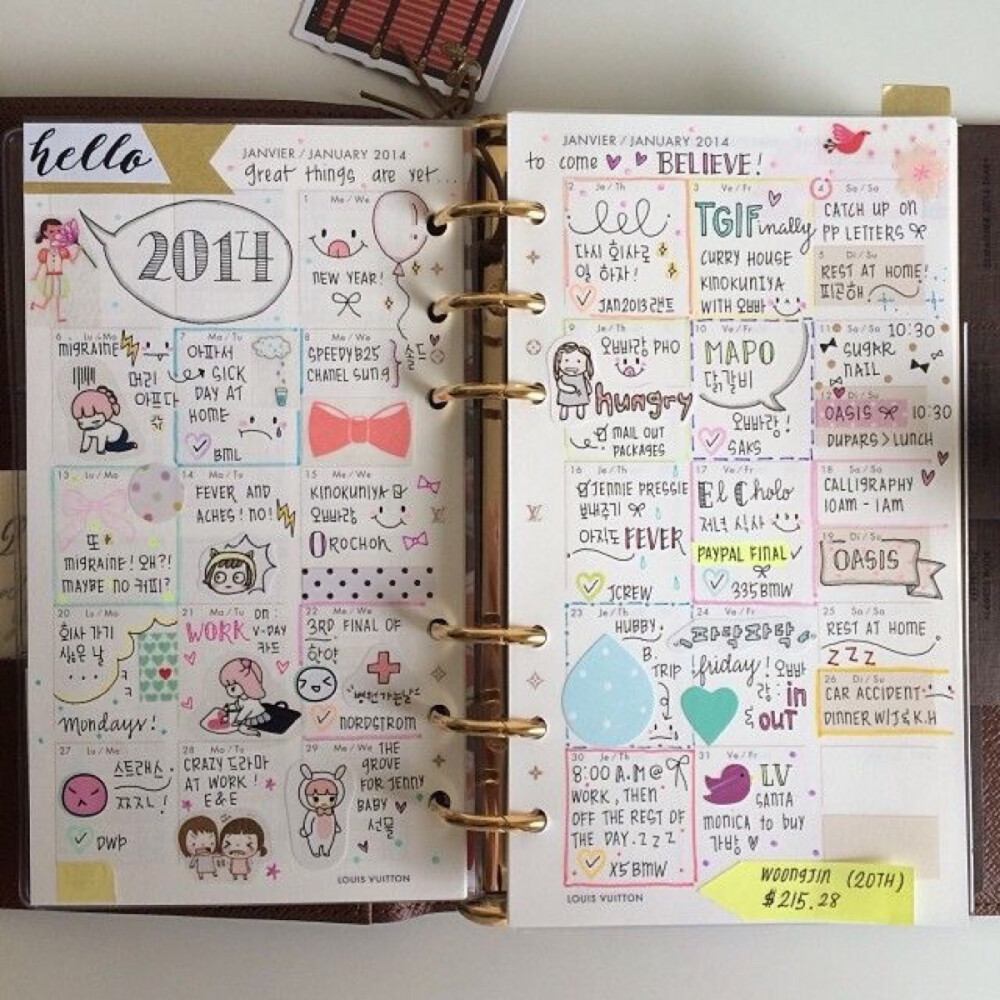 hello
JANVIER / JANUARY 2014
great things are yet...
2014
1 Me / We
NEW YEAR!
6 Lu / Mo
MIGRAINE
머리
아프다
7 Ma / Tu
아파서
SICK
DAY AT
HOME
BML
8 Me / We
SPEEDYB25
CHANEL SUN.G
솔드
13 Lu / Mo
또
MIGRAINE! 왜?!
MAYBE NO 커피?
14 Ma / Tu
FEVER AND
ACHES! NO!
15 Me / We
KINOKUNIYA
오빠랑
OROCHON
20 Lu / Mo
회사 가기
싫은 날
...ㅋ
ㅋ
mondays!
21 Ma / Tu
WORK ON:
V-DAY
카드
22 Me / We
3RD FINAL OF
한약
병원가는날
NORDSTROM
27 Lu / Mo
스트레스
ㅉㅈㄴ!
DWP
28 Ma / Tu
CRAZY 드라마
AT WORK!
E&E
29 Me / We
THE
GROVE
FOR JENNY
BABY
선물
LOUIS VUITTON
JANVIER / JANUARY 2014
to come BELIEVE!
2 Je / Th
다시 회사로
일 하자!
JAN2013랜트
3 Ve / Fr
TGIFinally
CURRY HOUSE
KINOKUNIYA
WITH 오빠
4 Sa / Sa
CATCH UP ON
PP LETTERS
5 Di / Su
REST AT HOME!
피곤해
9 Je / Th
오빠랑 PHO
hungry
MAIL OUT
PACKAGES
10 Ve / Fr
MAPO
닭갈비
오빠랑!
SAKS
11 Sa / Sa
10:30
SUGAR
NAIL
12 Di / Su
OASIS 10:30
DUPARS > LUNCH
16 Je / Th
JENNIE PRESSIE
보내주기
아직도 FEVER
JCREW
17 Ve / Fr
El Cholo
저녁 식사
PAYPAL FINAL
335BMW
18 Sa / Sa
CALLIGRAPHY
10AM - 1AM
19 Di / Su
OASIS
23 Je / Th
HUBBY.
B.
TRIP
24 Ve / Fr
friday! 오빠
랑: in
& OUT
25 Sa / Sa
REST AT HOME
Z Z Z
26 Di / Su
CAR ACCIDENT
DINNER W/J & K.H
30 Je / Th
8:00 A.M @
WORK, THEN
OFF THE REST OF
THE DAY. Z Z Z
X5BMW
31 Ve / Fr
LV
SANTA
MONICA to BUY
가방
WOONGJIN (20TH)
$215.28
LOUIS VUITTON